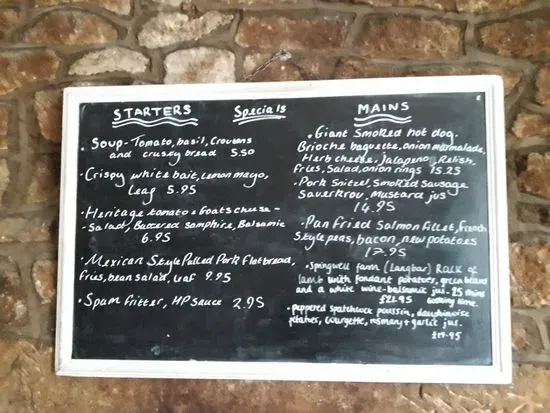 STARTERS
Specials
MAINS
• Soup - Tomato, basil, Croutons
and crusty bread 5.50
• Crispy white bait, Lemon mayo,
Leaf 5.95
• Heritage tomato + Goats cheese -
Salad, Buttered samphire, Balsamic
6.95
• Mexican Style Pulled Pork Flatbread,
fries, bean salad, Leaf 9.95
• Spam fritter, HP Sauce 2.95
• Giant Smoked hot dog.
Brioche baguette, onion marmalade,
Herb cheese, Jalapeno Relish,
fries, Salad, onion rings 15.25
• Pork Snitzel, Smoked Sausage
Saverkrov, Mustard jus
14.95
• Pan Fried Salmon fillet, French
Style peas, bacon, new potatoes
17.95
• Springwell farm (Langbar) Rack of
lamb with fondant potatoes, green beans
and a white wine-balsamic jus. 25 mins
£21.95 cooking time.
• peppered spatchcock poussin, dauphinoise
potatoes, courgette, rosemary + garlic jus.
£19.95